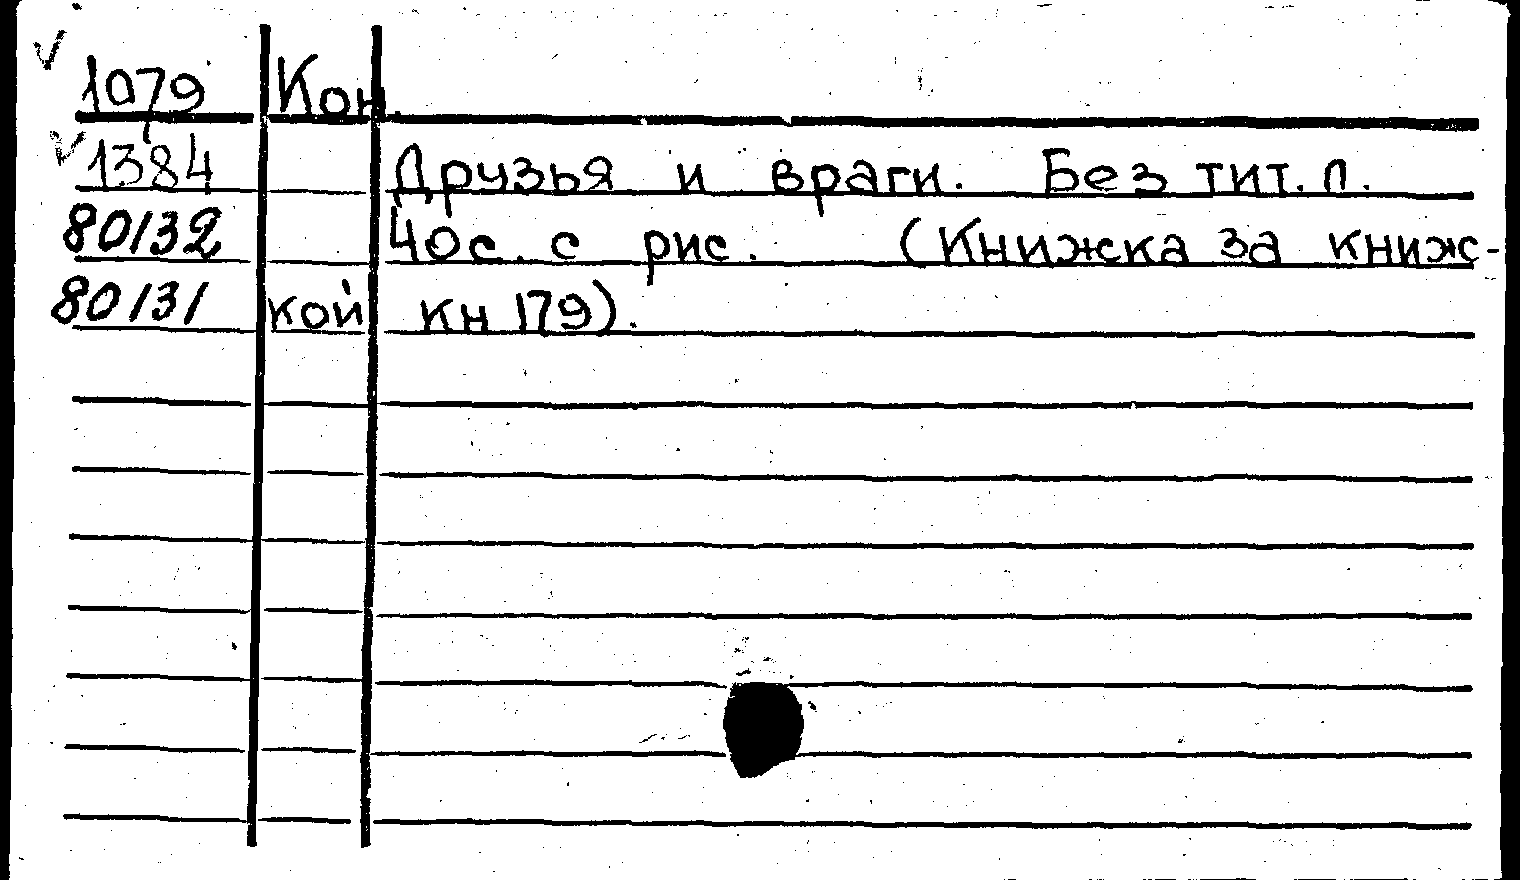 √ 1079 Кон.
√ 1384 Друзья и враги. Без тит. л.
80/132 40с. с рис. (Книжка за книж-
80/31 кой кн 179).